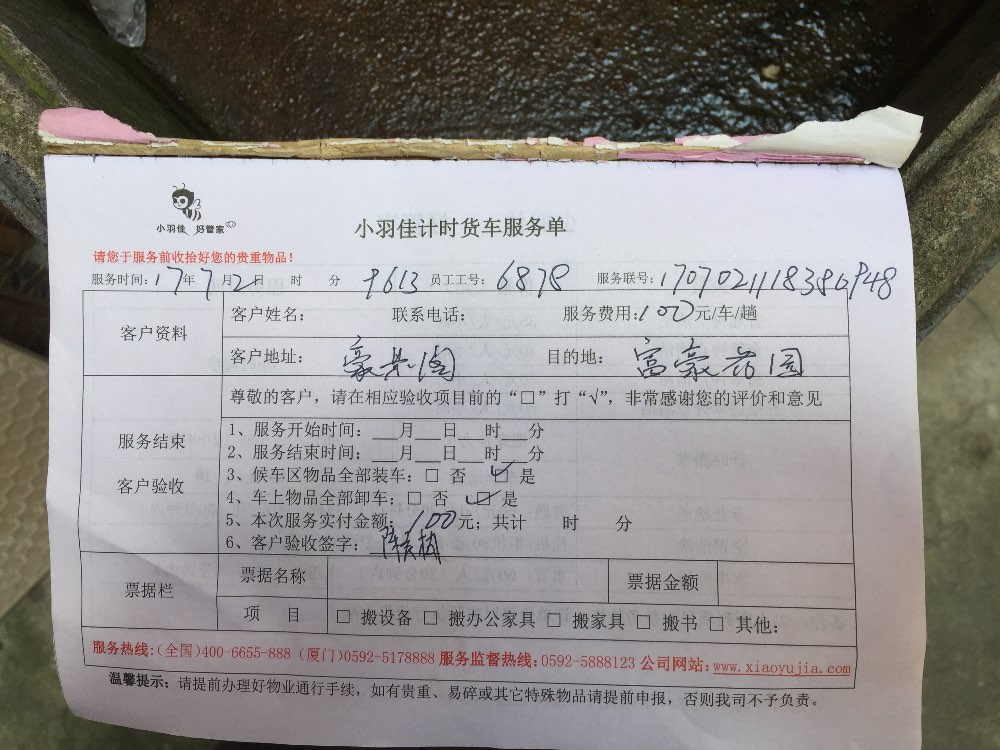 小羽佳 好管家
小羽佳计时货车服务单
请您于服务前收拾好您的贵重物品！
服务时间：17年7月2日 时 分 9613 员工工号：6878 服务联号：
客户资料
客户姓名： 联系电话： 服务费用：100元/车/趟
客户地址： 目的地：富豪花园
尊敬的客户，请在相应验收项目前的“□”打“√”，非常感谢您的评价和意见
服务结束
客户验收
1、服务开始时间：___月___日___时___分
2、服务结束时间：___月___日___时___分
3、候车区物品全部装车：□ 否 ☑ 是
4、车上物品全部卸车：□ 否 ☑ 是
5、本次服务实付金额：100元；共计 时 分
6、客户验收签字：
票据栏
票据名称 票据金额
项 目 □ 搬设备 □ 搬办公家具 □ 搬家具 □ 搬书 □ 其他：
服务热线：(全国)400-6655-888 (厦门)0592-5178888 服务监督热线：0592-5888123 公司网站：www.xiaoyujia.com
温馨提示：请提前办理好物业通行手续，如有贵重、易碎或其它特殊物品请提前申报，否则我司不予负责。